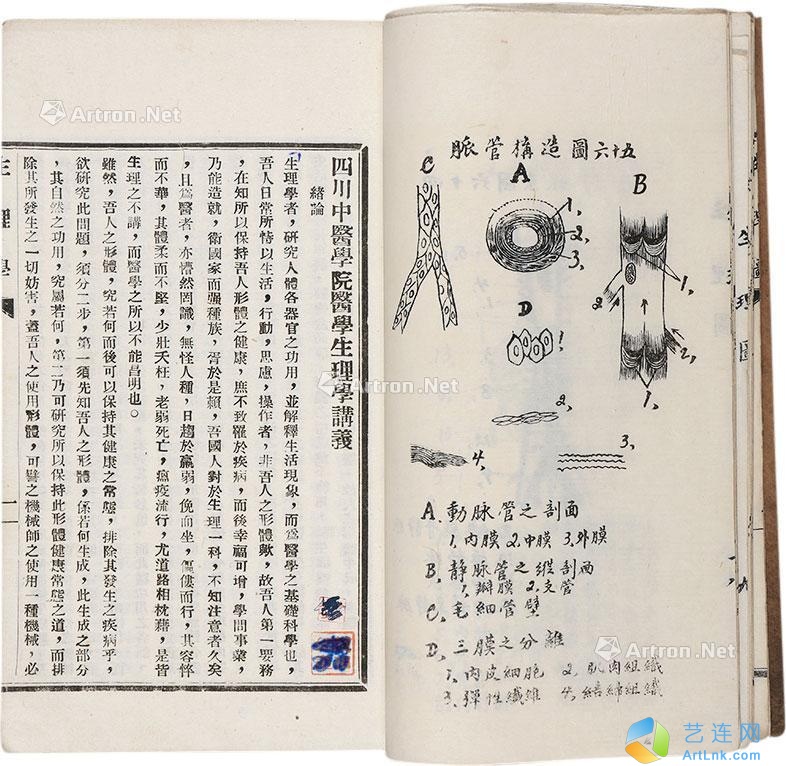 四川中醫學院醫學生理學講義
緒論
生理學者，研究人體各器官之功用，並解釋生活現象，而爲醫學之基礎科學也，
吾人日常所恃以生活，行動，思慮，操作者，非吾人之形體歟，故吾人第一要務
，在知所以保持吾人形體之健康，庶不致罹於疾病，而後幸福可增，學問事業，
乃能造就，衛國家而强種族，胥於是賴，吾國人對於生理一科，不知注意者久矣
，且爲醫者，亦懵然罔識，無怪人種，日趨於羸弱，俛而坐，傴僂而行，其容悴
而不華，其體柔而不堅，少壯夭枉，老弱死亡，瘟疫流行，尤道路相枕藉，是皆
生理之不講，而醫學之所以不能昌明也。
雖然，吾人之形體，究若何而後可以保持其健康之常態，排除其發生之疾病乎，
欲研究此問題，須分二步，第一須先知吾人之形體，係若何生成，此生成之部分
，其自然之功用，究屬若何，第二乃可研究所以保持此形體健康常態之道，而排
除其所發生之一切妨害，蓋吾人之使用形體，可譬之機械師之使用一種機械，必
生理學
一
脈管構造圖六十五
C
A
B
1,
2,
3,
D
1,
2,
1,
1,
2,
2,
3,
4,
A、動脈管之剖面
1,內膜 2,中膜 3,外膜
B、靜脈管之縱剖面
1,瓣膜 2,支管
C、毛細管壁
D、三膜之分離
1,內皮細胞 2,肌肉組織
3,彈性纖維 4,結締組織
生理圖
Artron.Net
Artron.Net
Artron.Net
Artron.Net
艺连网
ArtLnk.com